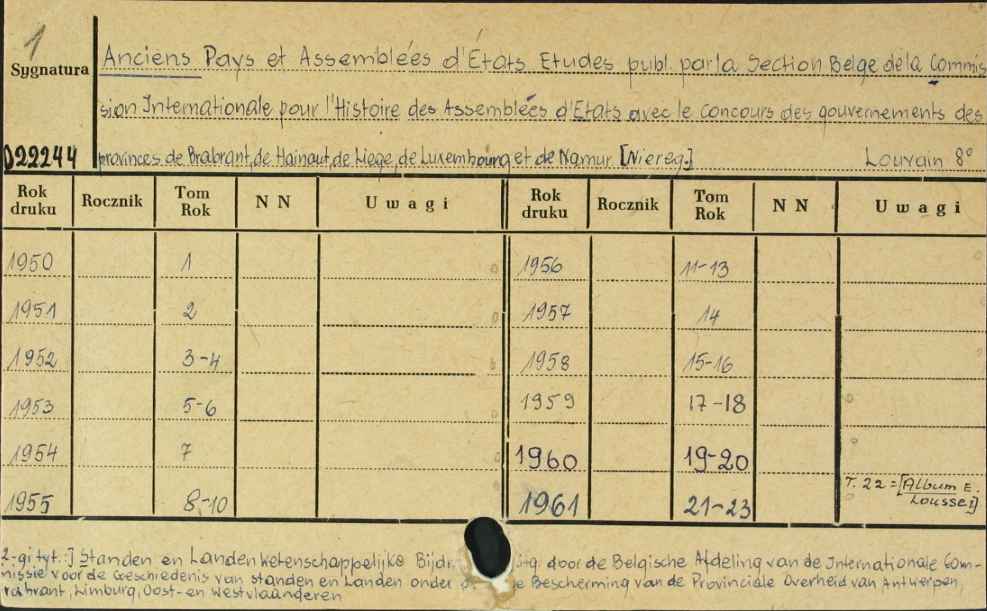 1
Sygnatura
Anciens Pays et Assemblées d'États Etudes publ. par la Section Belge de la Commis
sion Internationale pour l'Histoire des Assemblées d'Etats avec le concours des gouvernements des
022244 provinces de Brabrant, de Hainaut, de Liege, de Luxembourg et de Namur. [Niereg.] Louvain 8°
Rok druku Rocznik Tom Rok N N Uwagi Rok druku Rocznik Tom Rok N N Uwagi
1950 1 1956 11-13
1951 2 1957 14
1952 3-4 1958 15-16
1953 5-6 1959 17-18
1954 7 1960 19-20
1955 8-10 1961 21-23 T. 22 = [Album E. Lousse]
2-gi tyt.:] Standen en Landen Wetenschappelijke Bijdr. door de Belgische Afdeling van de Internationale Com-
missie voor de Geschiedenis van standen en Landen onder Bescherming van de Provinciale Overheid van Antwerpen,
rabrant, Limburg, Oost- en Westvlaanderen